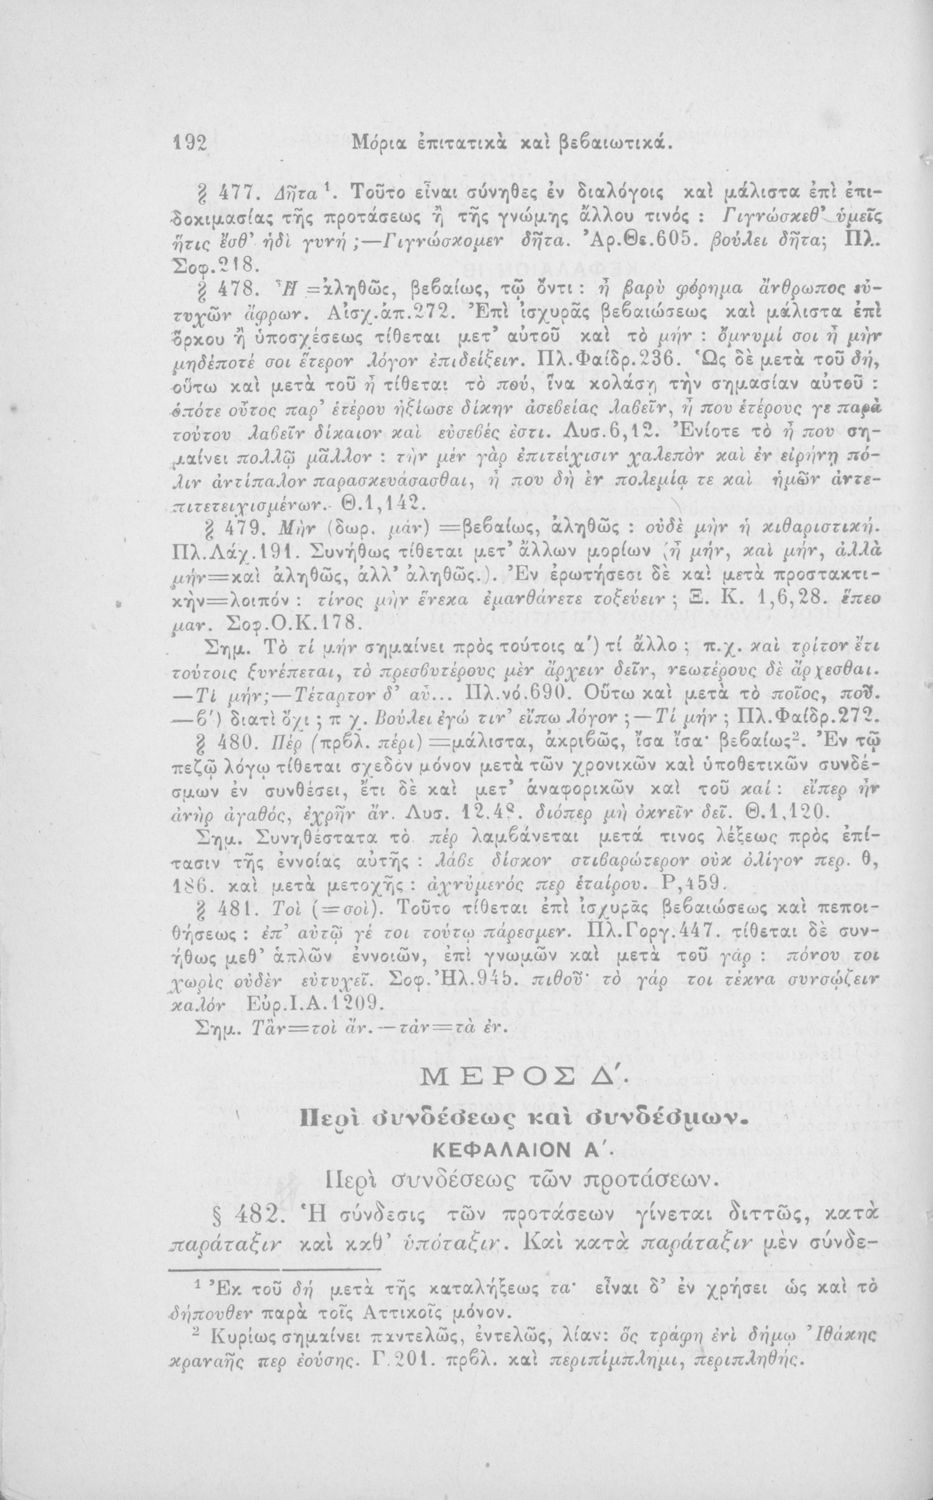 192 Μόρια ἐπιτατικὰ καὶ βεβαιωτικά.
§ 477. Δῆτα¹. Τοῦτο εἶναι σύνηθες ἐν διαλόγοις καὶ μάλιστα ἐπὶ ἐπι-
δοκιμασίας τῆς προτάσεως ἢ τῆς γνώμης ἄλλου τινός : Γιγνώσκεθ' ὑμεῖς
ἥτις ἔσθ' ἡδὶ γυνή ;—Γιγνώσκομεν δῆτα. Ἀρ.Θε.605. βούλει δῆτα; Πλ.
Σοφ.218.
§ 478. Ἦ =ἀληθῶς, βεβαίως, τῷ ὄντι : ἦ βαρὺ φόρημα ἄνθρωπος εὐ-
τυχῶν ἄφρων. Αἰσχ.ἀπ.272. Ἐπὶ ἰσχυρᾶς βεβαιώσεως καὶ μάλιστα ἐπὶ
ὅρκου ἢ ὑποσχέσεως τίθεται μετ' αὐτοῦ καὶ τὸ μήν : ὄμνυμί σοι ἦ μὴν
μηδέποτέ σοι ἕτερον λόγον ἐπιδείξειν. Πλ.Φαίδρ.236. Ὡς δὲ μετὰ τοῦ δή,
οὕτω καὶ μετὰ τοῦ ἦ τίθεται τὸ πού, ἵνα κολάσῃ τὴν σημασίαν αὐτοῦ :
ὁπότε οὗτος παρ' ἑτέρου ἠξίωσε δίκην ἀσεβείας λαβεῖν, ἦ που ἑτέρους γε παρὰ
τούτου λαβεῖν δίκαιον καὶ εὐσεβές ἐστι. Λυσ.6,12. Ἐνίοτε τὸ ἦ που ση-
μαίνει πολλῷ μᾶλλον : τὴν μὲν γὰρ ἐπιτείχισιν χαλεπὸν καὶ ἐν εἰρήνῃ πό-
λιν ἀντίπαλον παρασκευάσασθαι, ἦ που δὴ ἐν πολεμίᾳ τε καὶ ἡμῶν ἀντε-
πιτετειχισμένων. Θ.1,142.
§ 479. Μὴν (δωρ. μὰν) =βεβαίως, ἀληθῶς : οὐδὲ μὴν ἡ κιθαριστική.
Πλ.Λάχ.191. Συνήθως τίθεται μετ' ἄλλων μορίων (ἦ μήν, καὶ μήν, ἀλλὰ
μήν=καὶ ἀληθῶς, ἀλλ' ἀληθῶς.). Ἐν ἐρωτήσεσι δὲ καὶ μετὰ προστακτι-
κὴν=λοιπόν : τίνος μὴν ἕνεκα ἐμανθάνετε τοξεύειν ; Ξ. Κ. 1,6,28. ἕπεο
μαν. Σοφ.Ο.Κ.178.
Σημ. Τὸ τί μὴν σημαίνει πρὸς τούτοις α') τί ἄλλο ; π.χ. καὶ τρίτον ἔτι
τούτοις ξυνέπεται, τὸ πρεσβυτέρους μὲν ἄρχειν δεῖν, νεωτέρους δὲ ἄρχεσθαι.
—Τί μήν;—Τέταρτον δ' αὖ... Πλ.νό.690. Οὕτω καὶ μετὰ τὸ ποῖος, ποῦ.
—β') διατὶ ὄχι ; π χ. Βούλει ἐγώ τιν' εἴπω λόγον ;—Τί μήν ; Πλ.Φαίδρ.272.
§ 480. Πέρ (πρβλ. πέρι) =μάλιστα, ἀκριβῶς, ἴσα ἴσα· βεβαίως². Ἐν τῷ
πεζῷ λόγῳ τίθεται σχεδὸν μόνον μετὰ τῶν χρονικῶν καὶ ὑποθετικῶν συνδέ-
σμων ἐν συνθέσει, ἔτι δὲ καὶ μετ' ἀναφορικῶν καὶ τοῦ καί : εἴπερ ἦν
ἀνὴρ ἀγαθός, ἐχρῆν ἄν. Λυσ. 12.48. διόπερ μὴ ὀκνεῖν δεῖ. Θ.1,120.
Σημ. Συνηθέστατα τὸ πέρ λαμβάνεται μετά τινος λέξεως πρὸς ἐπί-
τασιν τῆς ἐννοίας αὐτῆς : λάβε δίσκον στιβαρώτερον οὐκ ὀλίγον περ. θ,
186. καὶ μετὰ μετοχῆς : ἀχνύμενός περ ἑταίρου. Ρ,459.
§ 481. Τοὶ (=σοὶ). Τοῦτο τίθεται ἐπὶ ἰσχυρᾶς βεβαιώσεως καὶ πεποι-
θήσεως : ἐπ' αὐτῷ γέ τοι τούτῳ πάρεσμεν. Πλ.Γοργ.447. τίθεται δὲ συν-
ήθως μεθ' ἁπλῶν ἐννοιῶν, ἐπὶ γνωμῶν καὶ μετὰ τοῦ γάρ : πόνου τοι
χωρὶς οὐδὲν εὐτυχεῖ. Σοφ.Ἠλ.945. πιθοῦ· τὸ γάρ τοι τέκνα συνσῴζειν
καλόν Εὐρ.Ι.Α.1209.
Σημ. Τἂν=τοὶ ἄν.—τἀν=τὰ ἐν.
ΜΕΡΟΣ Δ'.
Περὶ συνδέσεως καὶ συνδέσμων.
ΚΕΦΑΛΑΙΟΝ Α'.
Περὶ συνδέσεως τῶν προτάσεων.
§ 482. Ἡ σύνδεσις τῶν προτάσεων γίνεται διττῶς, κατὰ
παράταξιν καὶ καθ' ὑπόταξιν. Καὶ κατὰ παράταξιν μὲν σύνδε-
¹ Ἐκ τοῦ δή μετὰ τῆς καταλήξεως τα· εἶναι δ' ἐν χρήσει ὡς καὶ τὸ
δήπουθεν παρὰ τοῖς Ἀττικοῖς μόνον.
² Κυρίως σημαίνει παντελῶς, ἐντελῶς, λίαν: ὃς τράφη ἐνὶ δήμῳ Ἰθάκης
κραναῆς περ ἐούσης. Γ.201. πρβλ. καὶ περιπίμπλημι, περιπληθής.